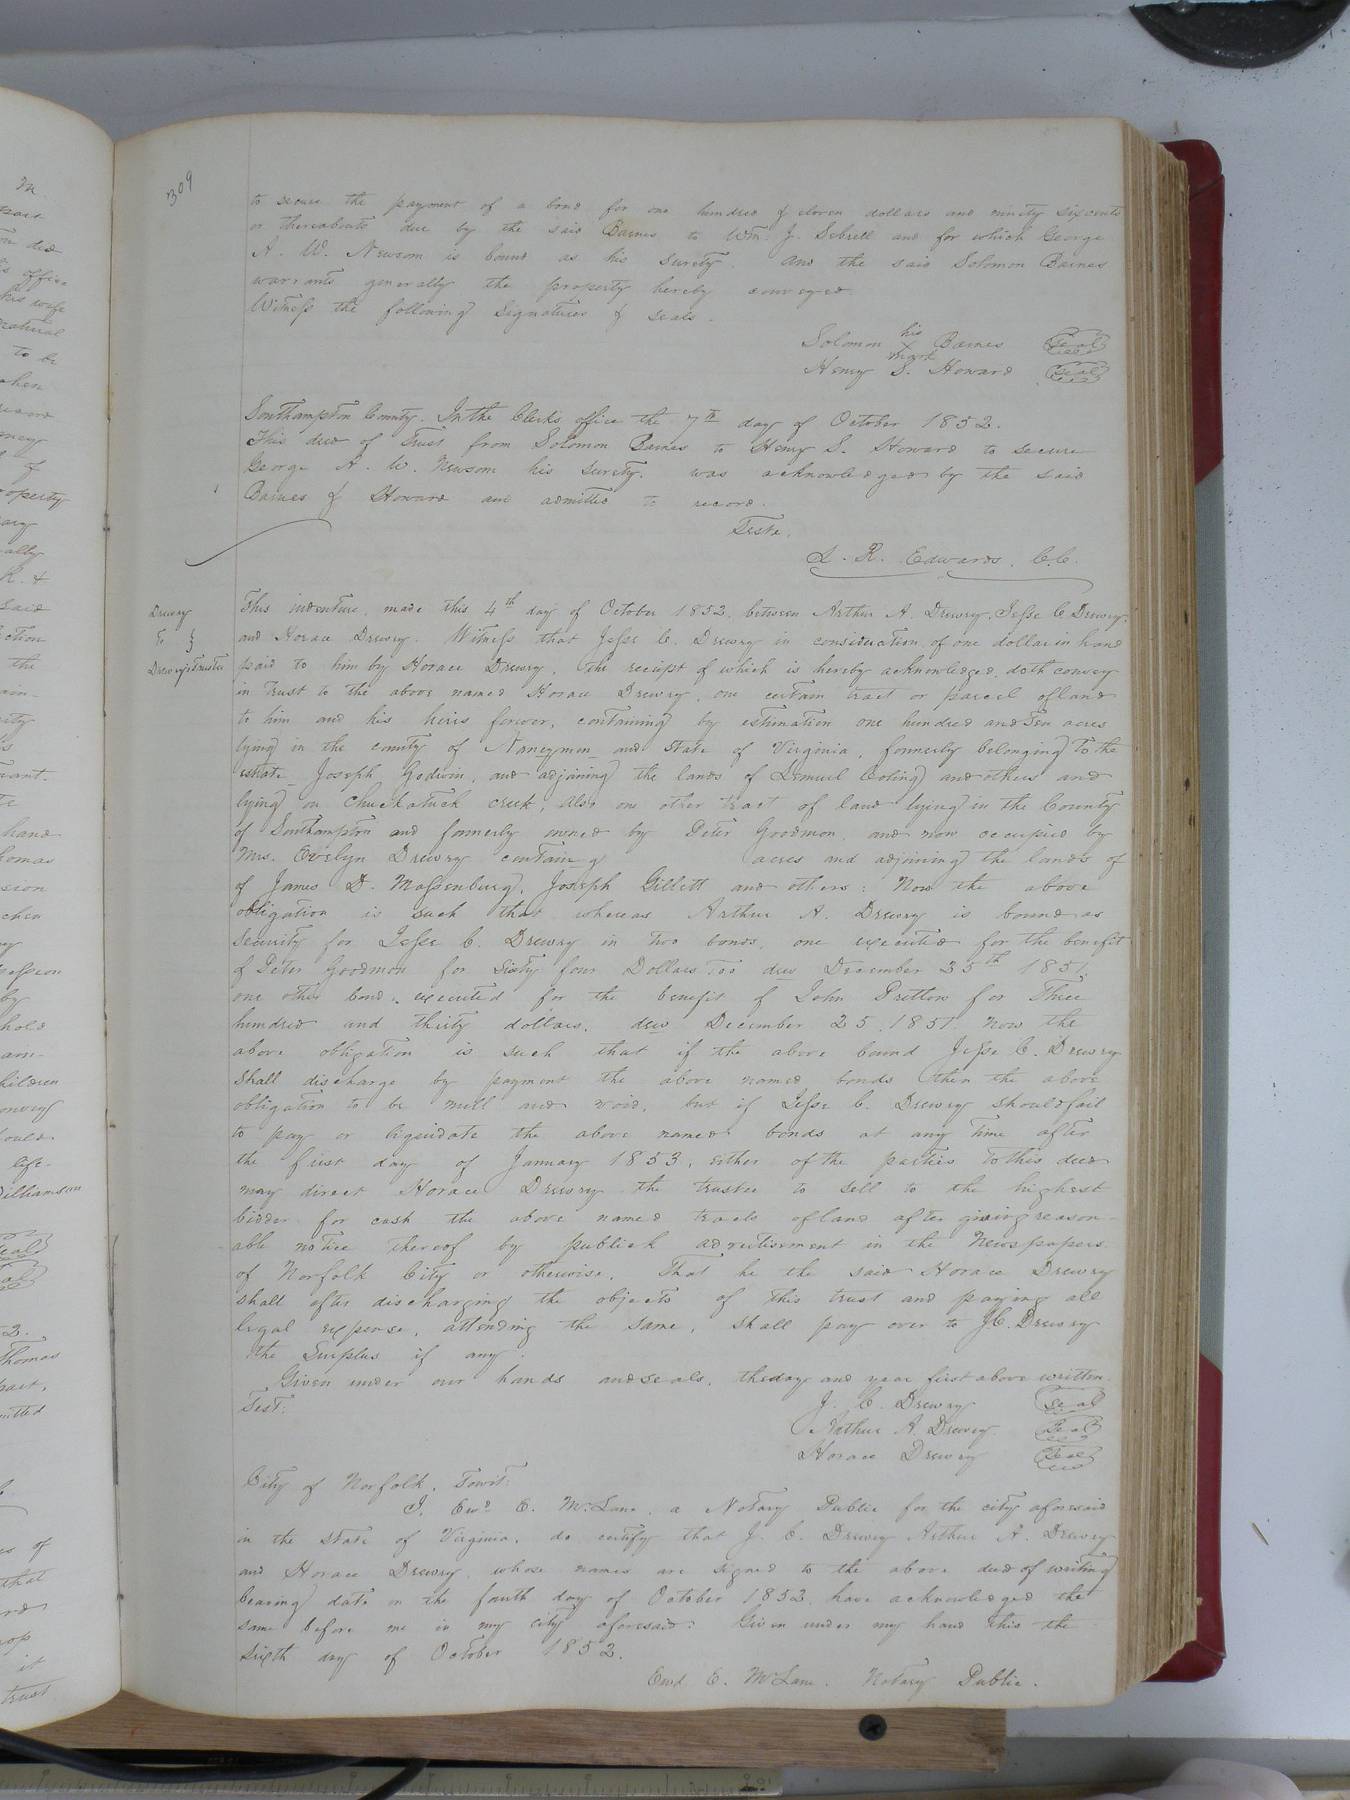 309
to secure the payment of a bond for one hundred & eleven dollars and ninety six cents
or thereabouts due by the said Barnes to Wm. J. Sebrell and for which George
A. W. Newsom is bound as his surety And the said Solomon Barnes
warrants generally the property hereby conveyed
Witness the following signatures & seals.
Solomon his X mark Barnes Seal
Henry S. Howard Seal
Southampton County. In the Clerks office the 7th day of October 1852.
This deed of Trust from Solomon Barnes to Henry S. Howard to secure
George A. W. Newsom his surety. was acknowledged by the said
Barnes & Howard and admitted to record.
Teste.
L. R. Edwards. C.C.
Drewry
To }
Drewry's Trustee
This indenture, made this 4th day of October 1852. between Arthur A. Drewry, Jesse C Drewry,
and Horace Drewry. Witness that Jesse C. Drewry in consideration of one dollar in hand
paid to him by Horace Drewry, the receipt of which is hereby acknowledged, doth convey
in Trust to the above named Horace Drewry, one certain tract or parcel of land
to him and his heirs forever, containing by estimation one hundred and ten acres
lying in the county of Nancymon and State of Virginia, formerly belonging To the
estate Joseph Godwin, and adjoining the lands of Lemuel and others and
lying on Chuckatuck creek, Also one other tract of land lying in the County
of Southampton and formerly owned by Peter Goodmon, and now occupied by
Mrs. Evelyn Drewry containg acres and adjoining the lands of
of James D. Massenburg, Joseph Gillett and others: Now the above
obligation is such that whereas Arthur A. Drewry is bound as
security for Jesse C. Drewry in two bonds, one executed for the benefit
of Peter Goodmon for Sixty four Dollars Too due December 25th 1851,
one other bond, executed for the benefit of John Pretlow for Three
hundred and thirty dollars, due December 25, 1851 Now the
above obligation is such that if the above bound Jesse C. Drewry
shall discharge by payment the above named bonds then the above
obligation to be null and void, but if Jesse C. Drewry should fail
to pay or liquidate the above named bonds at any Time after
the first day of January 1853, either of the parties To this deed
may direct Horace Drewry the trustee to sell to the highest
bidder for cash the above named tracts of land after giving reason-
able notice thereof by publick advertisement in the Newspapers
of Norfolk City or otherwise, That he the said Horace Drewry
shall after discharging the objects of this trust and paying all
legal expense, attending the same, shall pay over to J.C. Drewry
the Surplus if any.
Given under our hands and seals, the day and year first above written.
Test: J. C. Drewry Seal
Arthur A. Drewry Seal
Horace Drewry Seal
City of Norfolk, Towit:
I, Ewd E. McLane, a Notary Public for the city aforesaid
in the state of Virginia, do certify that J. C. Drewry Arthur A. Drewry
and Horace Drewry, whose names are signed to the above deed of writing
bearing date on the fourth day of October 1852, have acknowledged the
same before me in my city aforesaid: Given under my hand this the
sixth day of October 1852.
Ewd E. McLane. Notary Public.